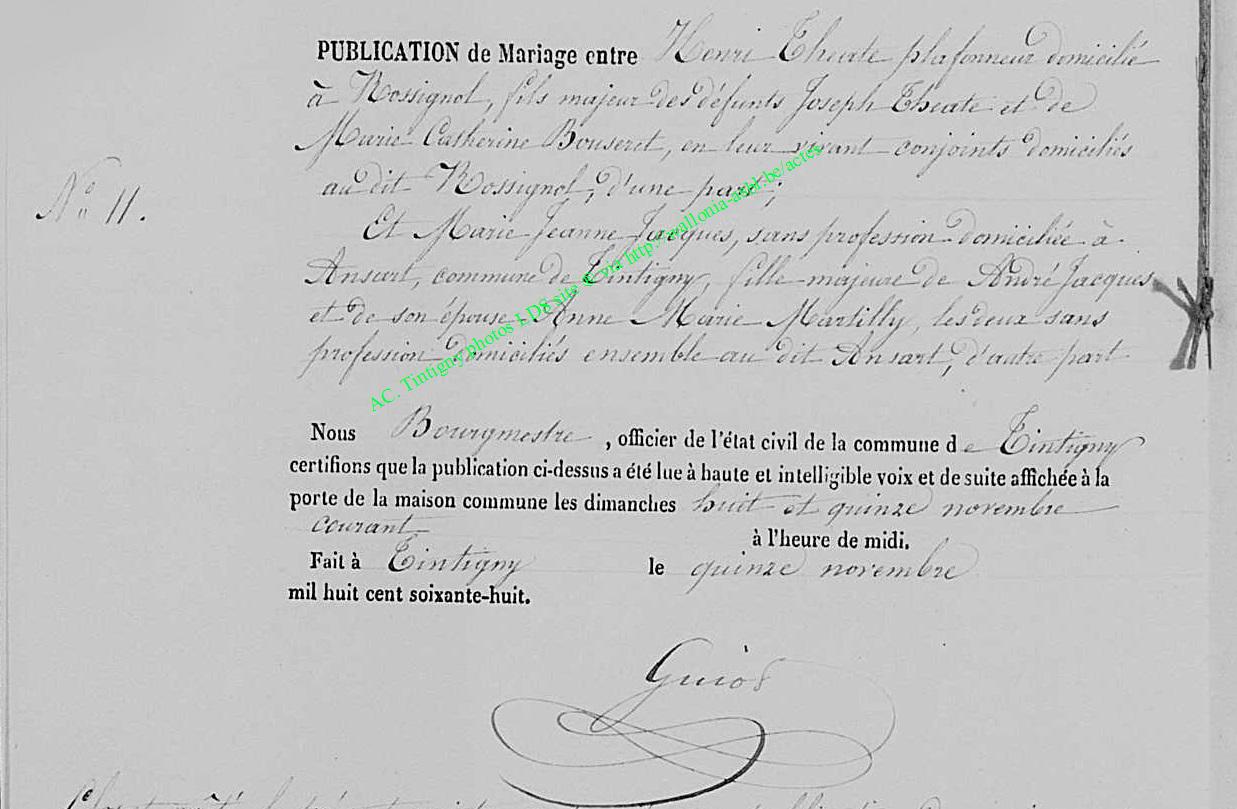 PUBLICATION de Mariage entre Henri Theate plafonneur domicilié
à Rossignol, fils majeur des défunts Joseph Theate et de
Marie Catherine Bouseret, en leur vivant conjoints domiciliés
au dit Rossignol, d'une part;
N° 11.
Et Marie Jeanne Jacques, sans profession domiciliée à
Ansart, commune de Tintigny, fille majeure de André Jacques
et de son épouse Anne Marie Martilly, les deux sans
profession domiciliés ensemble au dit Ansart, d'autre part
AC. Tintigny photos LDS site via http://wallonia-asbl.be/actes
Nous Bourgmestre, officier de l'état civil de la commune de Tintigny
certifions que la publication ci-dessus a été lue à haute et intelligible voix et de suite affichée à la
porte de la maison commune les dimanches huit et quinze novembre
courant
à l'heure de midi.
Fait à Tintigny le quinze novembre
mil huit cent soixante-huit.
Guiot